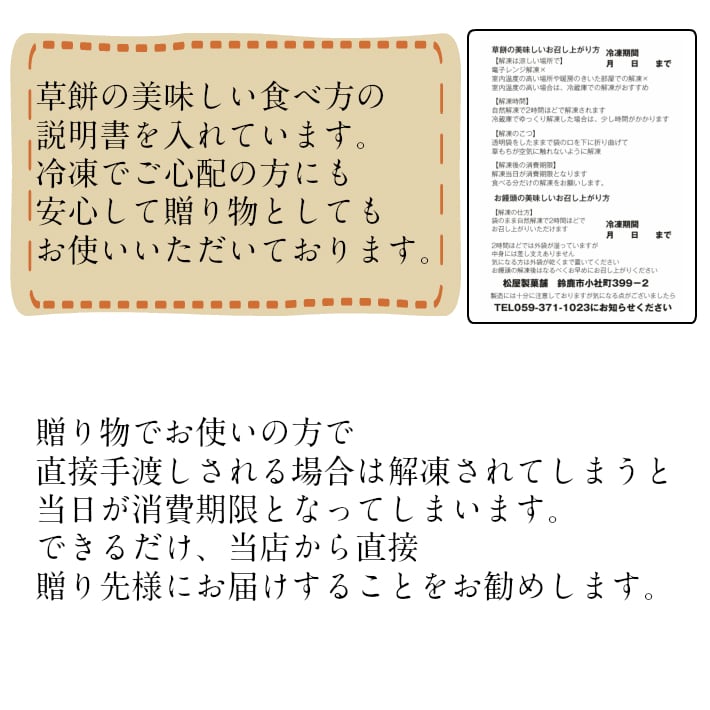 草餅の美味しい食べ方の
説明書を入れています。
冷凍でご心配の方にも
安心して贈り物としても
お使いいただいております。
草餅の美味しいお召し上がり方
冷凍期間
月 日 まで
【解凍は涼しい場所で】
電子レンジ解凍×
室内温度の高い場所や暖房のきいた部屋での解凍×
室内温度の高い場合は、冷蔵庫での解凍がおすすめ
【解凍時間】
自然解凍で2時間ほどで解凍されます
冷蔵庫でゆっくり解凍した場合は、少し時間がかかります
【解凍のこつ】
透明袋をしたままで袋の口を下に折り曲げて
草もちが空気に触れないように解凍
【解凍後の消費期限】
解凍当日が消費期限となります
食べる分だけの解凍をお願いします。
お饅頭の美味しいお召し上がり方
【解凍の仕方】
袋のまま自然解凍で2時間ほどで
お召し上がりいただけます
冷凍期間
月 日 まで
2時間ほどでは外袋が湿っていますが
中身には差し支えありません
気になる方は外袋が乾くまで置いてください
お饅頭の解凍後はなるべくお早めにお召し上がりください
松屋製菓舗 鈴鹿市小社町399－2
製造には十分に注意しておりますが気になる点がございましたら
TEL059-371-1023にお知らせください
贈り物でお使いの方で
直接手渡しされる場合は解凍されてしまうと
当日が消費期限となってしまいます。
できるだけ、当店から直接
贈り先様にお届けすることをお勧めします。